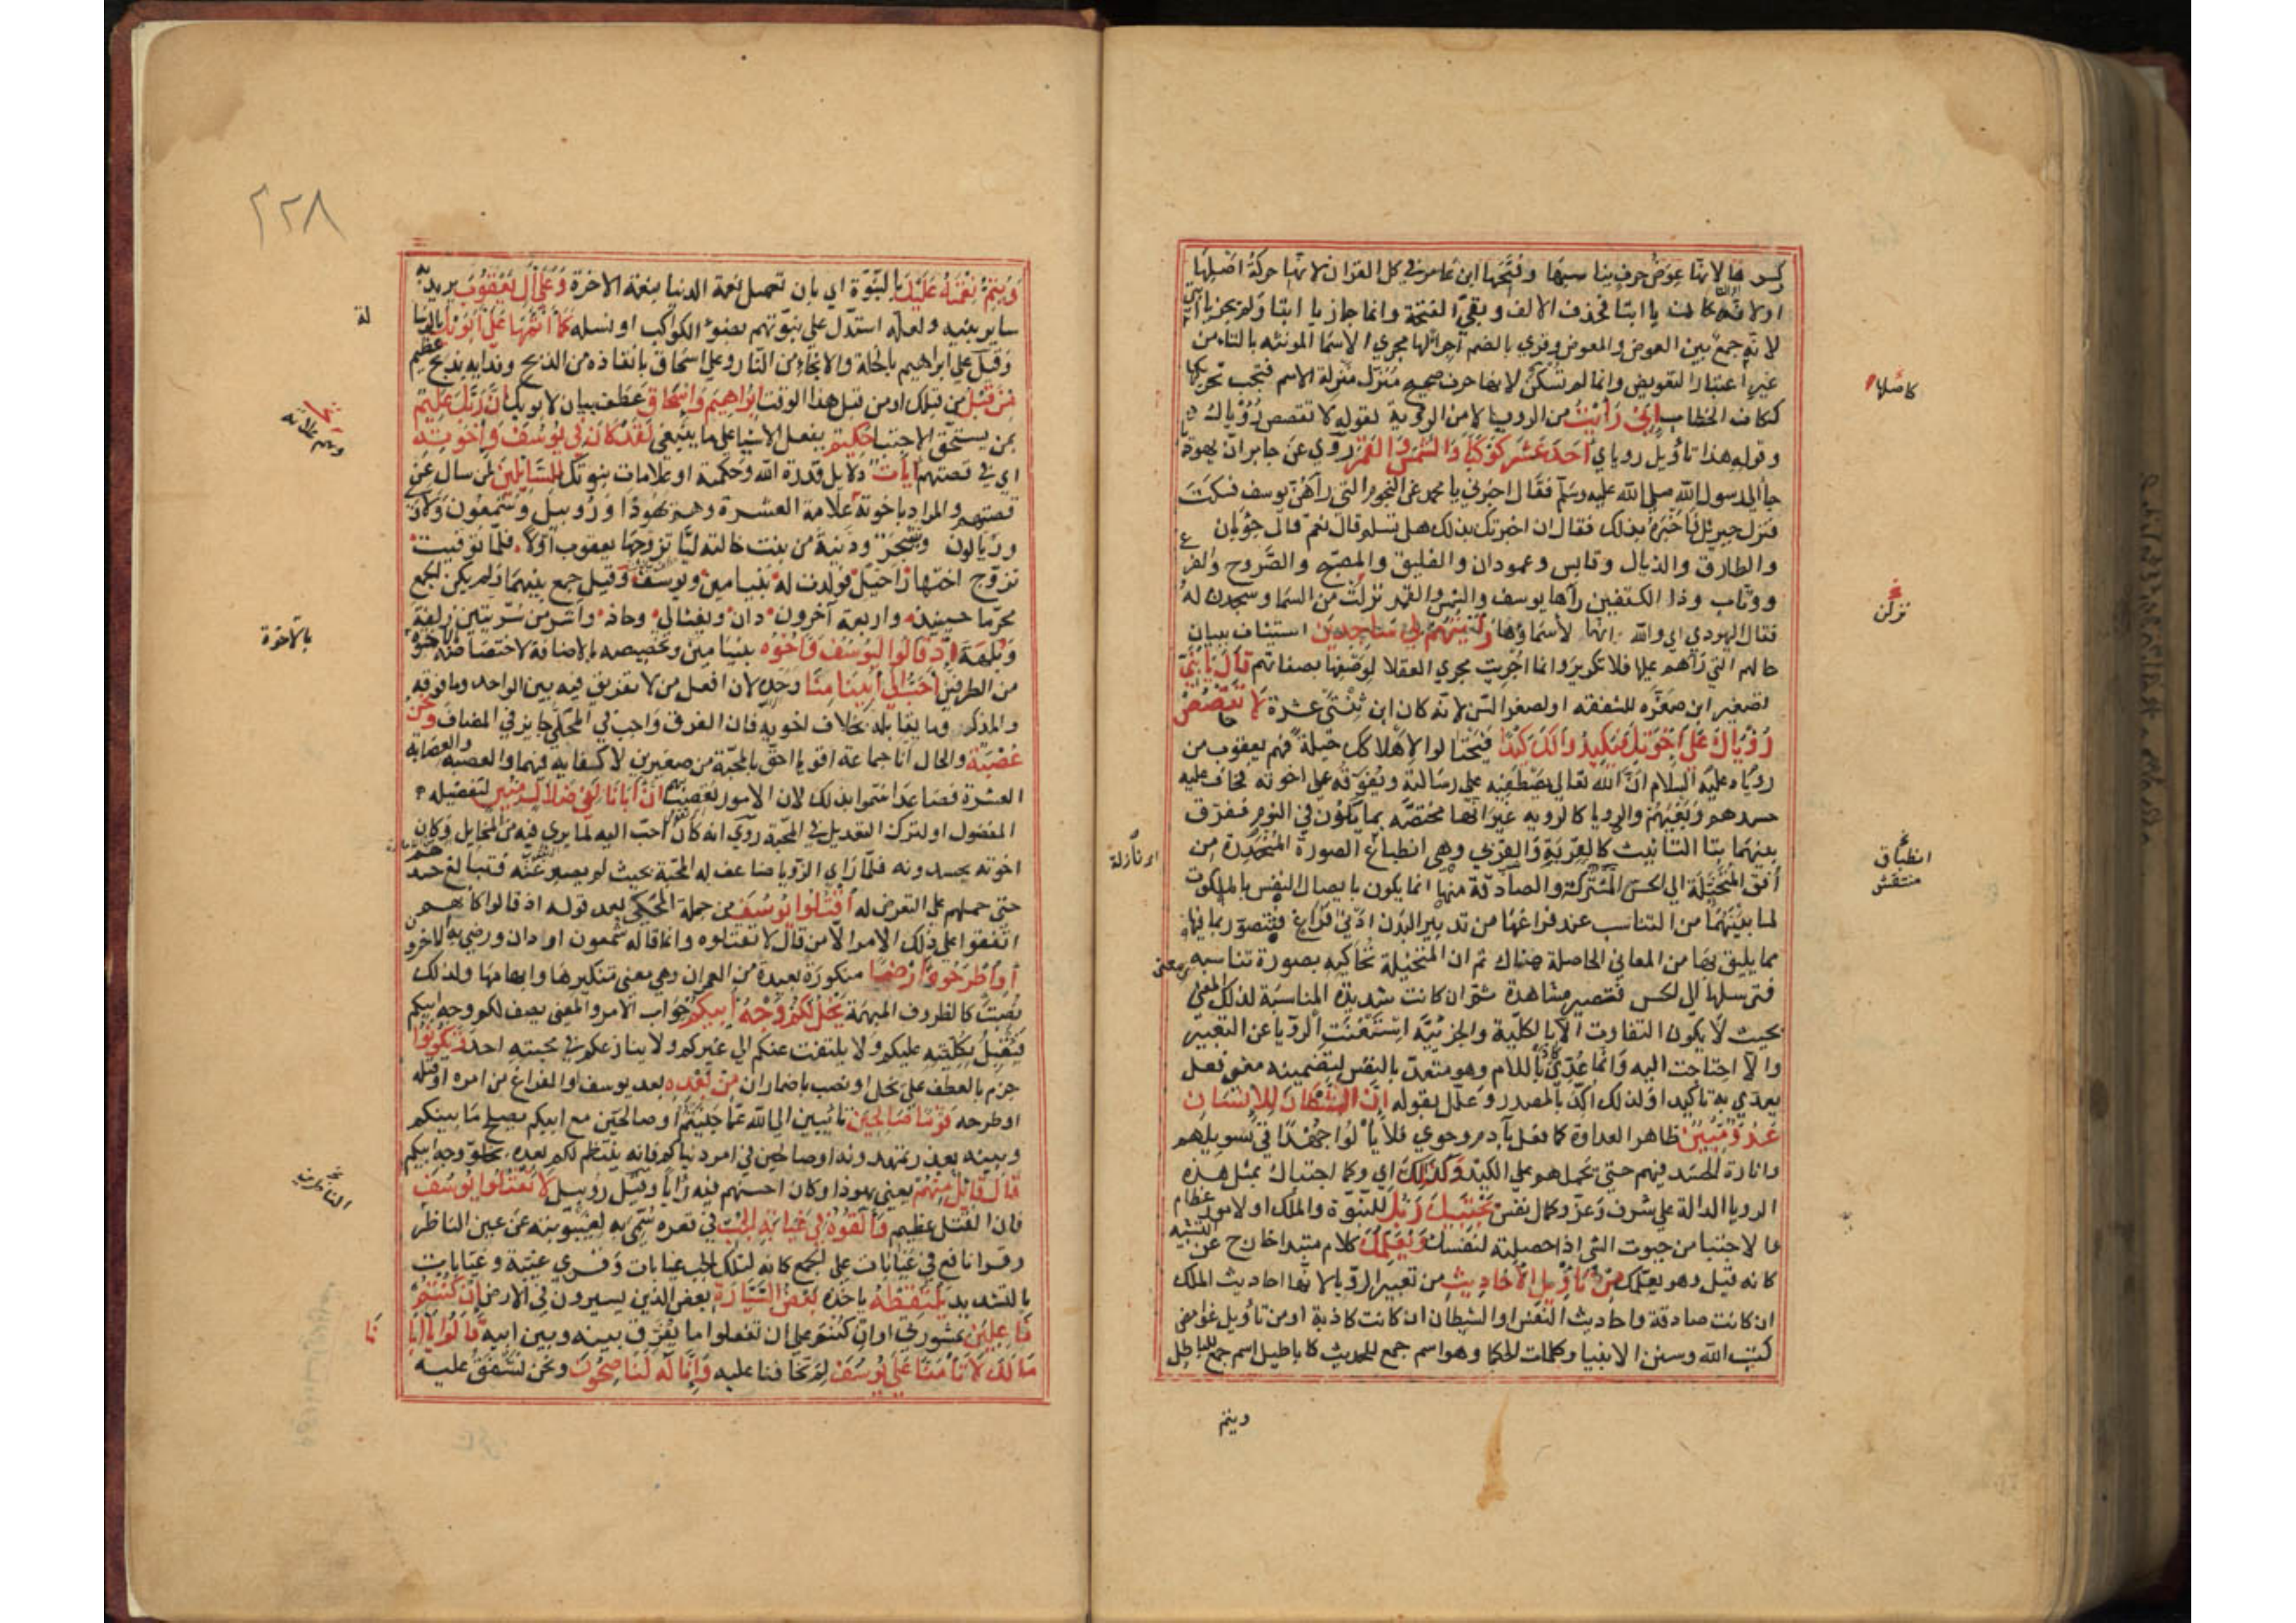 كسرها لانها عوض حرف يناسبها وفتحها ابن عامر في كل القران لانها حركة اصلها
او لانه كان يا ابتا فحذف الالف وبقي الفتحة وانما جاز يا ابتا ولم يجز يا ابتي
لانه جمع بين العوض والمعوض وقري بالضم اجرا لها مجري الاسما المونثه بالتاء من
غير اعتبار التعويض وانما لم تسكن لانها حرف صحيح منزل منزلة الاسم فيجب تحريكها
ككاف الخطاب اني رأيت من الرويا لا من الروية لقوله لا تقصص رؤياك
وقوله هذا تأويل روياي احد عشر كوكبا والشمس والقمر روي عن جابر ان يهوديا
جا الي رسول الله صلي الله عليه وسلم فقال اخبرني يا محمد عن النجوم التي رآهن يوسف فسكت
فنزل جبريل فاخبره بذلك فقال ان اخبرتك بذلك هل تسلم قال نعم قال جربان
والطارق والذيال وقابس وعمودان والفليق والمصبح والضروح والفرغ
ووثاب وذا الكتفين رآها يوسف والشمس والقمر نزلت من السما وسجدن له
فقال اليهودي اي والله انها لأسماؤها رأيتهم لي ساجدين استيناف ببيان
حالهم التي رآهم عليها فلا تكرير وانما اجريت مجري العقلا لوصفها بصفاتهم قال يا بني
تصغير ابن صغره للشفقه او لصغر السن لانه كان ابن ثنتي عشرة لا تقصص
رؤياك علي اخوتك فيكيدوا لك كيدا فيحتالوا لاهلاكك حيلة فهم يعقوب من
روياه عليه السلام ان الله تعالي يصطفيه علي رسالته ويفوقه علي اخوته فخاف عليه
حسدهم وبغيهم والرويا كالرويه غير انها مختصه بما يكون في النوم ففرق
بينهما بتا التانيث كالقربة والقربي وهي انطباع الصورة المنحدرة من
أفق المتخيلة الي الحس المشترك والصادقة منها انما يكون باتصال النفس بالملكوت
لما بينهما من التناسب عند فراغها من تدبير البدن ادني فراغ فيتصور بما فيها
مما يليق بها من المعاني الحاصلة هناك ثم ان المتخيلة تحاكيه بصورة تناسبه
فترسلها الي الحس فتصير مشاهدة ثم ان كانت شديدة المناسبة لذلك المعني
بحيث لا يكون التفاوت الا بالكلية والجزئية استغنت الرويا عن التعبير
والا احتاجت اليه وانما عدي كاد باللام وهو متعد بالنفس لتضمينه معني فعل
يعدي به تاكيدا ولذلك اكد بالمصدر وعلل بقوله ان الشيطان للانسان
عدو مبين ظاهر العداوة كما فعل بآدم وحوي فلا يألوا جهدا في تسويلهم
واثارة الحسد فيهم حتي يحملهم علي الكيد وكذلك اي وكما اجتباك بمثل هذه
الرويا الدالة علي شرف وعز وكمال نفس يجتبيك ربك للنبوة والملك او لامور عظام
والاجتبا من جبوت الشي اذا حصلته لنفسك ويعلمك كلام مبتدا خارج عن التشبيه
كانه قيل وهو يعلمك من تأويل الأحاديث من تعبير الرويا لانها احاديث الملك
ان كانت صادقة واحاديث النفس او الشيطان ان كانت كاذبة او من تاويل غوامض
كتب الله وسنن الانبيا وكلمات الحكما وهو اسم جمع للحديث كاباطيل اسم جمع للباطل
ويتم
كاصلها
نزلن
انطباق
منتقش
٢٢٨
ويتم نعمته عليك بالنبوة اي بان تصل نعمة الدنيا بنعمة الاخرة وعلي آل يعقوب يريد به
ساير بنيه ولعله استدل علي نبوتهم بضوء الكواكب او نسله كما اتمها علي ابويك بالرسالة
وقيل علي ابراهيم بالخلة والانجاء من النار وعلي اسحاق بانقاذه من الذبح وفدايه بذبح عظيم
من قبل من قبلك او من قبل هذا الوقت ابراهيم واسحاق عطف بيان لابويك ان ربك عليم
بمن يستحق الاجتبا حكيم يفعل الاشيا علي ما ينبغي لقد كان في يوسف واخوته
اي في قصتهم آيات دلايل قدرة الله وحكمته او علامات نبوتك للسائلين لمن سال عن
قصتهم والمراد باخوته علامة العشرة وهم يهودا وروبيل وشمعون ولاوي
وزيالون ويشجر ودينة من بنت خالته ليا تزوجها يعقوب اولا فلما توفيت
تزوج اختها راحيل فولدت له بنيامين ويوسف وقيل جمع بينهما ولم يكن الجمع
محرما حينئذ واربعة آخرون دان ويفثالي وحاد واشر من سريتين زلفة
وبلهة اذ قالوا ليوسف واخوه بنيامين وتخصيصه بالاضافة لاختصاصه بالاخوة
من الطرفين احب الي ابينا منا وحده لان افعل من لا يفرق فيه بين الواحد وما فوقه
والمذكر وما يقابله بخلاف اخويه فان الفرق واجب في المحلي جايز في المضاف ونحن
عصبة والحال انا جماعة اقويا احق بالمحبة من صغيرين لا كفاية فيهما والعصبة والعصابة
العشرة فصاعدا سموا بذلك لان الامور تعصب بهم ان ابانا لفي ضلال مبين لتفضيله
المفضول او لترك التعديل في المحبة روي انه كان احب اليه لما يري فيه من المخايل وكان
اخوته يحسدونه فلما راي الرويا ضاعف له المحبة بحيث لم يصبر عنه فتبالغ حسدهم
حتي حملهم علي التعرض له اقتلوا يوسف من جملة المحكي بعد قوله اذ قالوا كانهم
اتفقوا علي ذلك الامر الا من قال لا تقتلوه وانما قاله شمعون او دان ورضي به الاخرون
أو اطرحوه أرضا منكورة بعيدة من العمران وهي معني تنكيرها وابهامها ولذلك
نصبت كالظروف المبهمة يخل لكم وجه ابيكم جواب الامر والمعني يصف لكم وجه ابيكم
فيقبل بكليته عليكم ولا يلتفت عنكم الي غيركم ولا ينازعكم في محبته احد وتكونوا
جزم بالعطف علي يخل او نصب باضمار ان من بعده بعد يوسف او الفراغ من امره او قتله
او طرحه قوما صالحين تائبين الي الله عما جنيتم او صالحين مع ابيكم يصلح ما بينكم
وبينه بعذر تمهدونه او صالحين في امر دنياكم فانه ينتظم لكم بعده بخلو وجه ابيكم
قال قائل منهم يعني يهودا وكان احسنهم فيه رأيا وقيل روبيل لا تقتلوا يوسف
فان القتل عظيم وألقوه في غيابة الجب في قعره سمي به لغيبوبته عن عين الناظر
وقرا نافع في غيابات علي الجمع كانه لتلك الجب غيابات وقري غيبة وغيابات
بالتشديد يلتقطه ياخذه بعض السيارة بعض الذين يسيرون في الارض ان كنتم
فاعلين بمشورتي او ان كنتم علي ان تفعلوا ما يفرق بينه وبين ابيه قالوا يا ابانا
مالك لا تأمنا علي يوسف لم تخافنا عليه وإنا له لناصحون ونحن نشفق عليه
بالاخوة
الناظرين